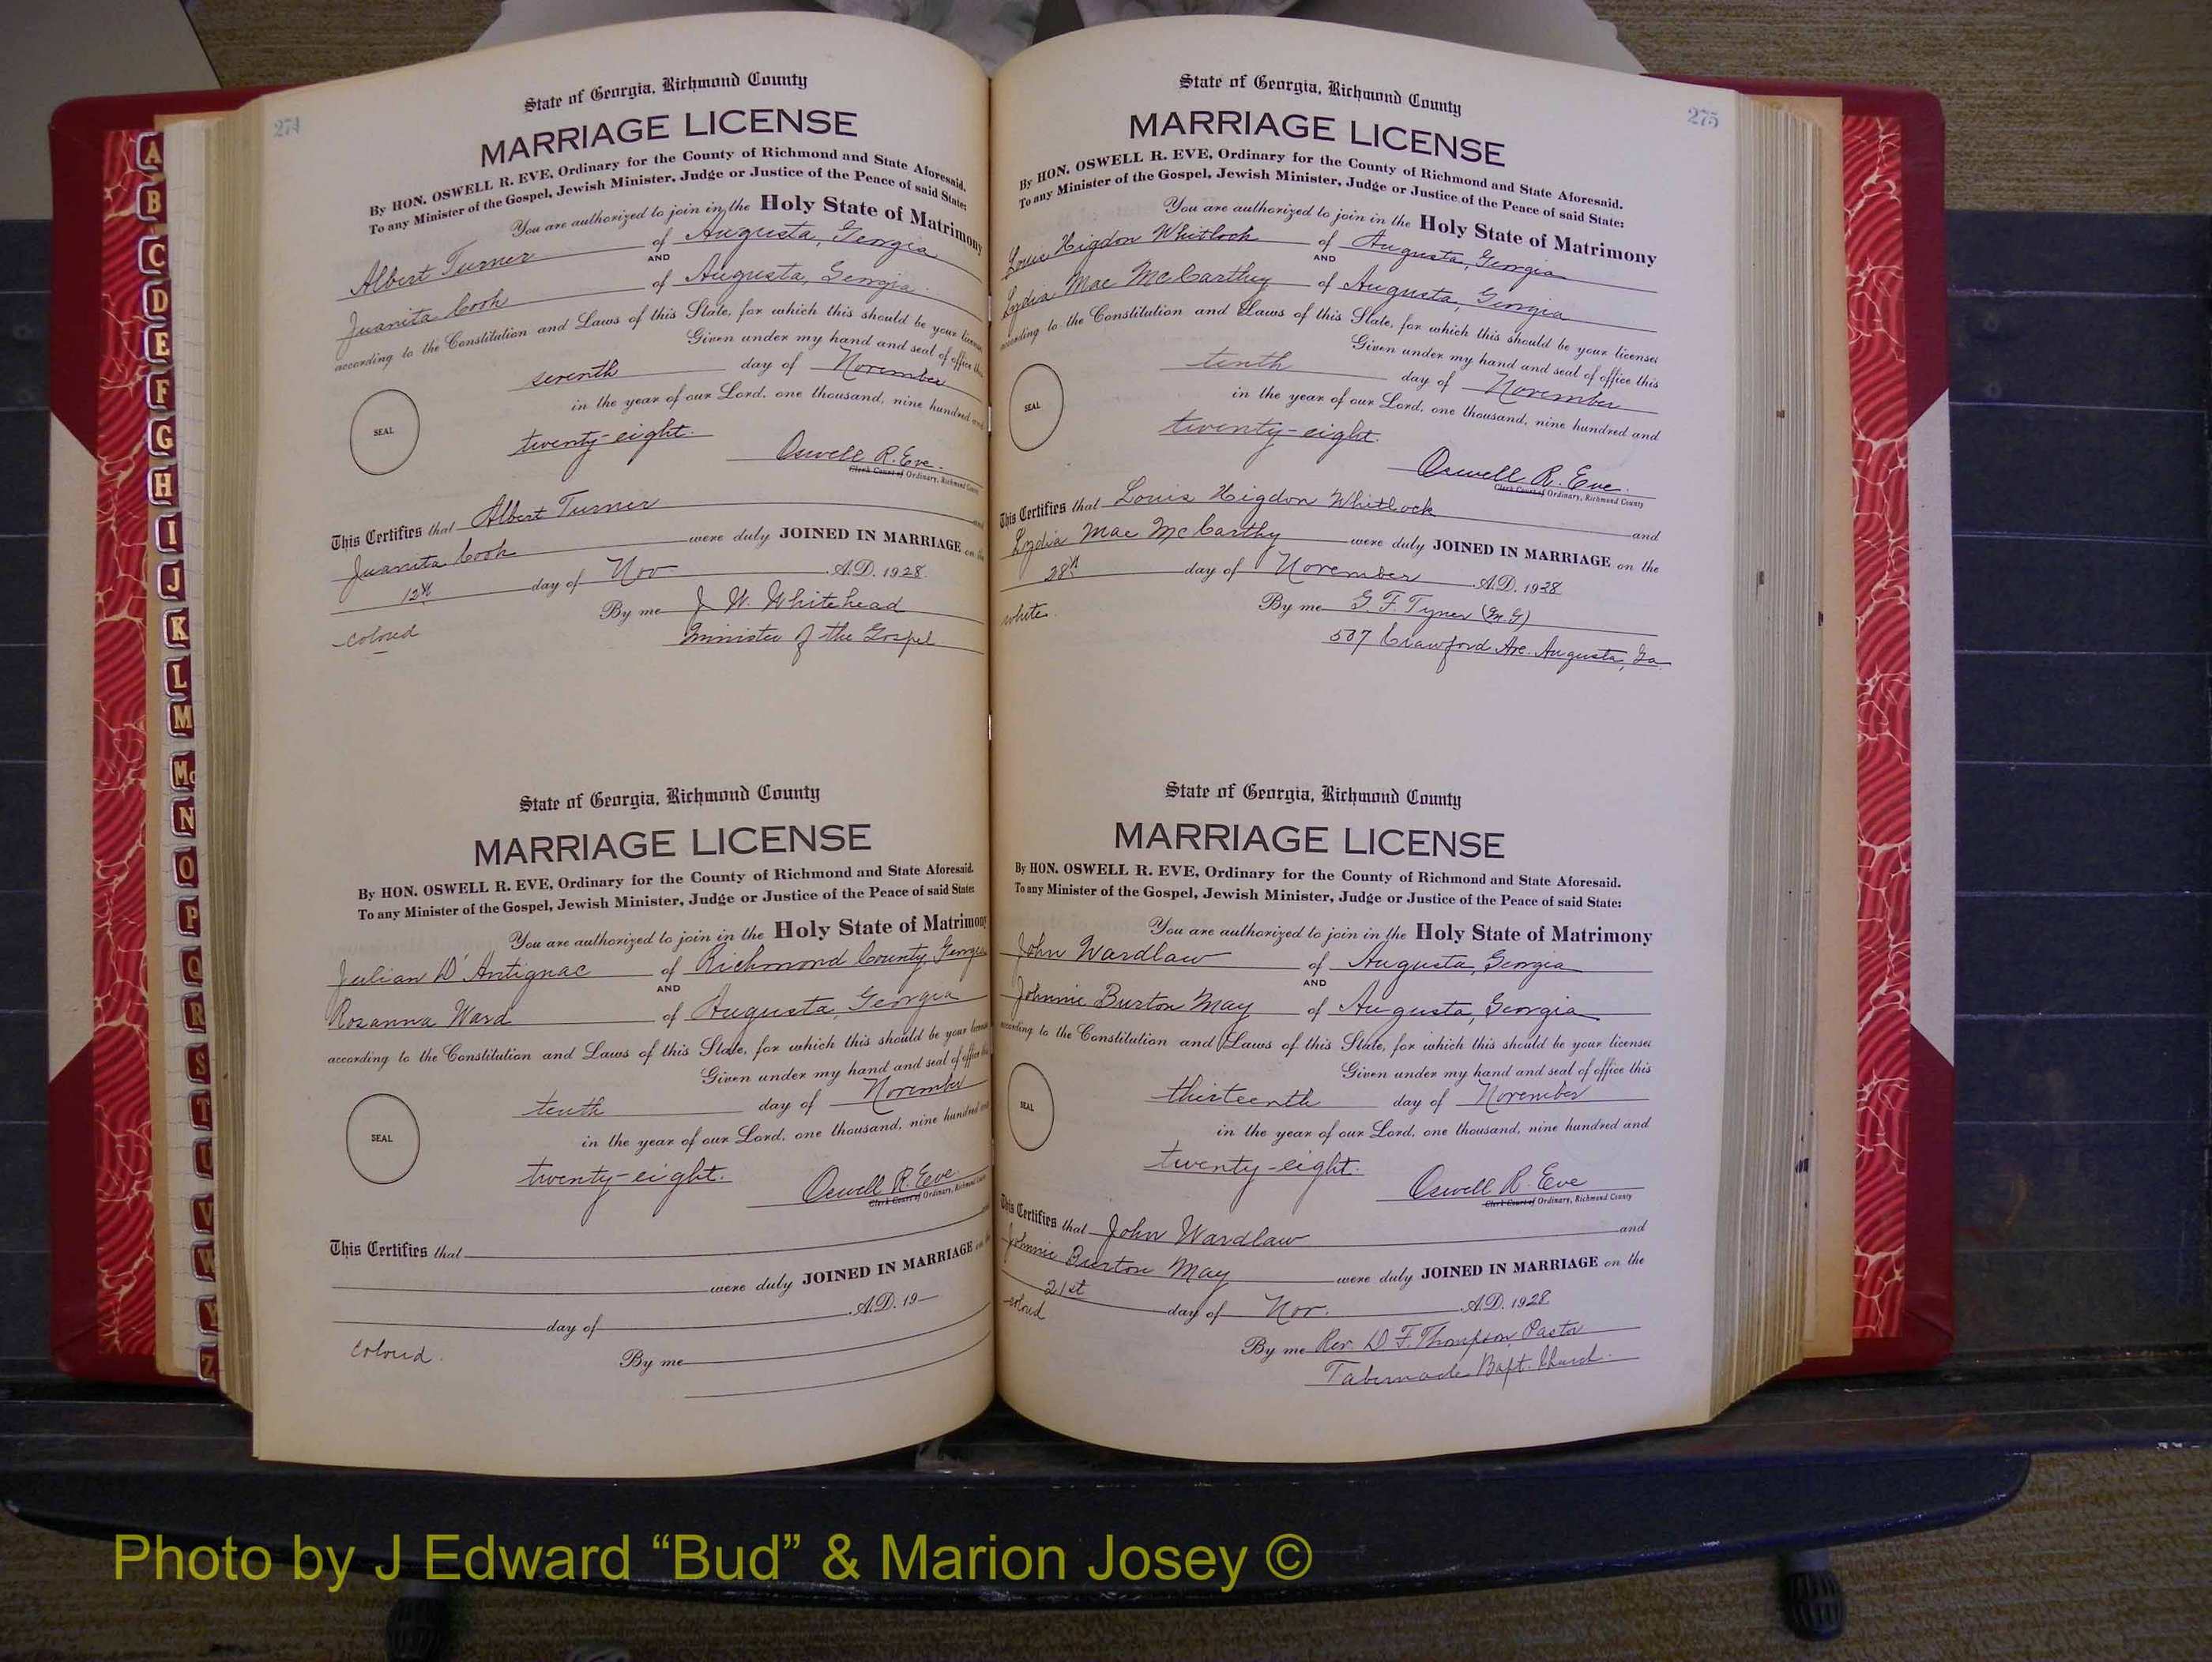 274
State of Georgia, Richmond County
MARRIAGE LICENSE
By HON. OSWELL R. EVE, Ordinary for the County of Richmond and State Aforesaid.
To any Minister of the Gospel, Jewish Minister, Judge or Justice of the Peace of said State:
You are authorized to join in the Holy State of Matrimony
Albert Turner of Augusta, Georgia
AND
Juanita Cook of Augusta, Georgia
according to the Constitution and Laws of this State, for which this should be your license
Given under my hand and seal of office this
seventh day of November
in the year of our Lord, one thousand, nine hundred and
SEAL
twenty-eight.
Oswell R. Eve.
Clerk Court of Ordinary, Richmond County
This Certifies that Albert Turner and
Juanita Cook were duly JOINED IN MARRIAGE on the
12th day of Nov A.D. 1928.
By me J W. Whitehead
colored
Minister of the Gospel.
State of Georgia, Richmond County
MARRIAGE LICENSE
By HON. OSWELL R. EVE, Ordinary for the County of Richmond and State Aforesaid.
To any Minister of the Gospel, Jewish Minister, Judge or Justice of the Peace of said State:
You are authorized to join in the Holy State of Matrimony
Julian D'Antignac of Richmond County, Georgia
AND
Rosanna Ward of Augusta, Georgia
according to the Constitution and Laws of this State, for which this should be your license
Given under my hand and seal of office this
tenth day of November
in the year of our Lord, one thousand, nine hundred and
SEAL
twenty-eight.
Oswell R. Eve
Clerk Court of Ordinary, Richmond County
This Certifies that
were duly JOINED IN MARRIAGE on the
day of A.D. 19
colored.
By me
275
State of Georgia, Richmond County
MARRIAGE LICENSE
By HON. OSWELL R. EVE, Ordinary for the County of Richmond and State Aforesaid.
To any Minister of the Gospel, Jewish Minister, Judge or Justice of the Peace of said State:
You are authorized to join in the Holy State of Matrimony
Louis Higdon Whitlock of Augusta, Georgia
AND
Lydia Mae McCarthy of Augusta, Georgia
according to the Constitution and Laws of this State, for which this should be your license:
Given under my hand and seal of office this
tenth day of November
in the year of our Lord, one thousand, nine hundred and
SEAL
twenty-eight.
Oswell R. Eve.
Clerk Court of Ordinary, Richmond County
This Certifies that Louis Higdon Whitlock and
Lydia Mae McCarthy were duly JOINED IN MARRIAGE on the
28th day of November A.D. 1928.
white.
By me G. F. Tyner (M.G)
587 Crawford Ave. Augusta, Ga
State of Georgia, Richmond County
MARRIAGE LICENSE
By HON. OSWELL R. EVE, Ordinary for the County of Richmond and State Aforesaid.
To any Minister of the Gospel, Jewish Minister, Judge or Justice of the Peace of said State:
You are authorized to join in the Holy State of Matrimony
John Wardlaw of Augusta, Georgia
AND
Johnnie Burton May of Augusta, Georgia
according to the Constitution and Laws of this State, for which this should be your license:
Given under my hand and seal of office this
thirteenth day of November
in the year of our Lord, one thousand, nine hundred and
SEAL
twenty-eight.
Oswell R. Eve
Clerk Court of Ordinary, Richmond County
This Certifies that John Wardlaw and
Johnnie Burton May were duly JOINED IN MARRIAGE on the
21st day of Nov. A.D. 1928.
colored
By me Rev. D. F. Thompson, Pastor
Tabernacle Bapt. Church.
A
B
C
D
E
F
G
H
I
J
K
L
M
Mc
N
O
P
Q
R
S
T
U
V
W
Y
Z
Photo by J Edward “Bud” & Marion Josey ©